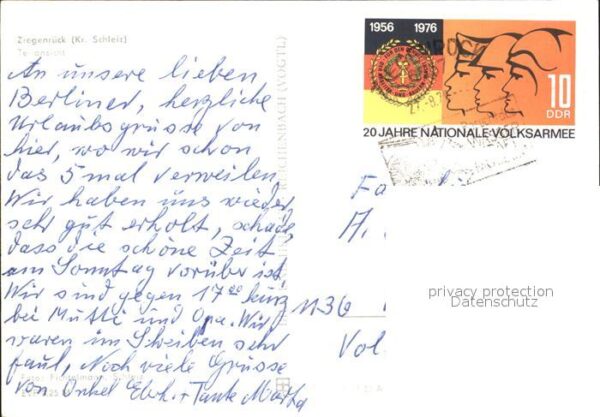 Ziegenrück (Kr. Schleiz)
Teilansicht
An unsere lieben
Berliner, herzliche
Urlaubsgrüsse von
hier, wo wir schon
das 5 mal verweilen.
Wir haben uns wieder
sehr gut erholt, schade,
dass die schöne Zeit
am Sonntag vorüber ist.
Wir sind gegen 17⁰⁰ kurz
bei Mutti und Opa. Wir
waren im Schreiben sehr
faul, Noch viele Grüsse
von Onkel Ebrh. + Tante Marta
REICHENBACH (VOGTL)
1956 1976
10
DDR
20 JAHRE NATIONALE VOLKSARMEE
Fa
A.
1136
Vol
privacy protection
Datenschutz